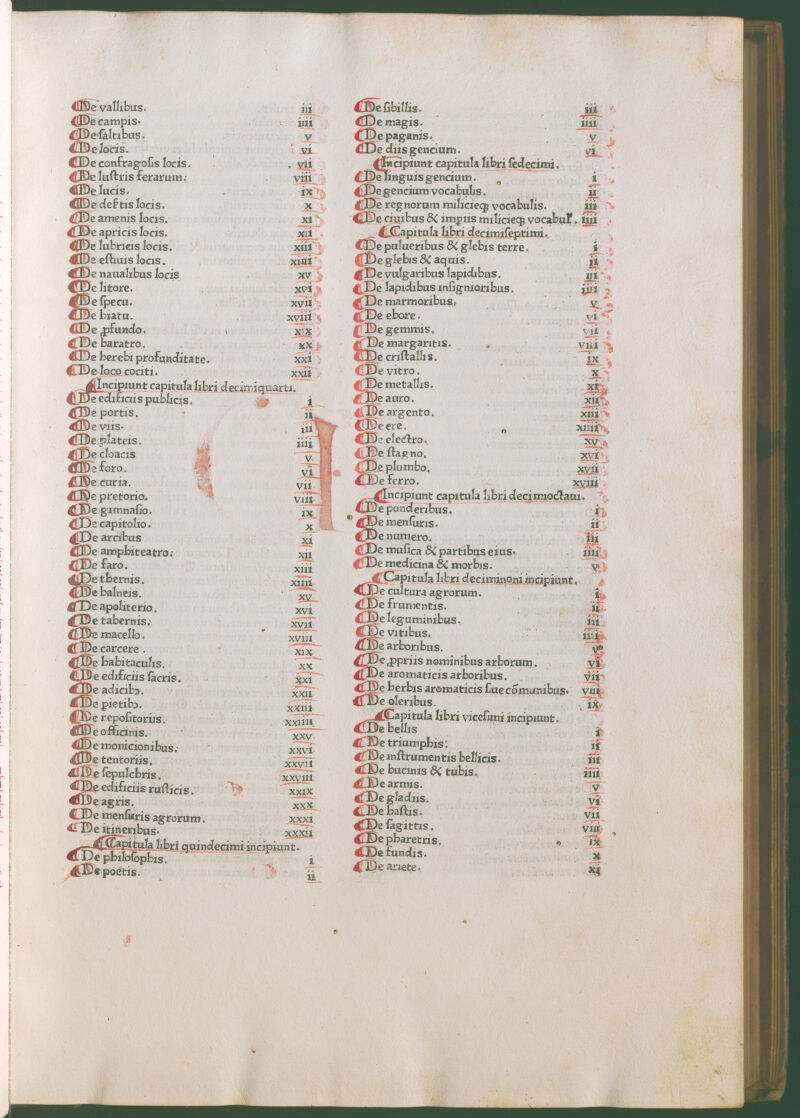 ¶De vallibus. iii
¶De campis. iiii
¶De saltibus. v
¶De locis. vi
¶De confragosis locis. vii
¶De lustris ferarum. viii
¶De lucis. ix
¶De deſtis locis. x
¶De amenis locis. xi
¶De apricis locis. xii
¶De lubricis locis. xiii
¶De estiuis locis. xiiii
¶De naualibus locis xv
¶De litore. xvi
¶De specu. xvii
¶De hiatu. xviii
¶De ꝓfundo. xix
¶De baratro. xx
¶De herebi profunditate. xxi
¶De loco cociti. xxii
¶Incipiunt capitula libri decimiquarti.
¶De edificiis publicis. i
¶De portis. ii
¶De viis. iii
¶De plateis. iiii
¶De cloacis v
¶De foro. vi
¶De curia. vii
¶De pretorio. viii
¶De gimnasio. ix
¶De capitolio. x
¶De arcibus xi
¶De amphiteatro. xii
¶De faro. xiii
¶De thernis. xiiii
¶De balneis. xv
¶De apoliterio. xvi
¶De tabernis. xvii
¶De macello. xviii
¶De carcere. xix
¶De habitaculis. xx
¶De edificiis sacris. xxi
¶De adicibꝫ. xxii
¶De pietibꝫ. xxiii
¶De repositoriis. xxiiii
¶De officinis. xxv
¶De monicionibus. xxvi
¶De tentoriis. xxvii
¶De sepulchris. xxviii
¶De edificiis rusticis. xxix
¶De agris. xxx
¶De mensuris agrorum. xxxi
¶De itineribus. xxxii
¶Capitula libri quindecimi incipiunt.
¶De philosophis. i
¶De poetis. ii
¶De sibillis. iii
¶De magis. iiii
¶De paganis. v
¶De diis gencium. vi
¶Incipiunt capitula libri sedecimi.
¶De linguis gencium. i
¶De gencium vocabulis. ii
¶De regnorum milicieqꝫ vocabulis. iii
¶De ciuibus & impiis milicieqꝫ vocabuꝉ. iiii
¶Capitula libri decimiseptimi.
¶De pulueribus & glebis terre. i
¶De glebis & aquis. ii
¶De vulgaribus lapidibus. iii
¶De lapidibus insignioribus. iiii
¶De marmoribus. v
¶De ebore. vi
¶De gemmis. vii
¶De margaritis. viii
¶De cristallis. ix
¶De vitro. x
¶De metallis. xi
¶De auro. xii
¶De argento. xiii
¶De ere. xiiii
¶De electro. xv
¶De stagno. xvi
¶De plumbo. xvii
¶De ferro. xviii
¶Incipiunt capitula libri decimioctaui.
¶De ponderibus. i
¶De mensuris. ii
¶De numero. iii
¶De musica & partibus eius. iiii
¶De medicina & morbis. v
¶Capitula libri deciminoni incipiunt.
¶De cultura agrorum. i
¶De frumentis. ii
¶De leguminibus. iii
¶De vitibus. iiii
¶De arboribus. v
¶De ꝓpriis nominibus arborum. vi
¶De aromaticis arboribus. vii
¶De herbis aromaticis siue cōmunibus. viii
¶De oleribus. ix
¶Capitula libri vicesimi incipiunt.
¶De bellis i
¶De triumphis. ii
¶De instrumentis bellicis. iii
¶De bucinis & tubis. iiii
¶De armis. v
¶De gladiis. vi
¶De hastis. vii
¶De sagittis. viii
¶De pharetris. ix
¶De fundis. x
¶De ariete. xi